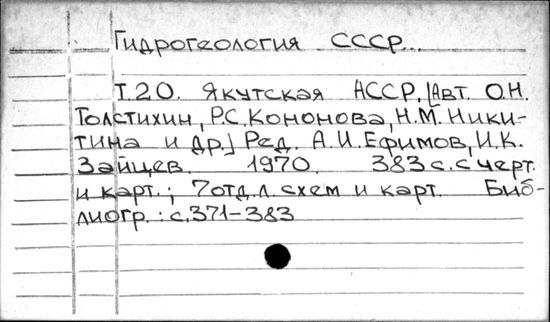 Гидрогеология СССР...
Т.20. Якутская АССР. [Авт. О.Н.
Толстихин, Р.С. Кононова, Н.М. Ники-
тина и др.] Ред. А.И. Ефимов, И.К.
Зайцев. 1970. 383 с. с черт.
и карт.; 7 отд. л. схем и карт. Биб-
лиогр.: с. 371-383